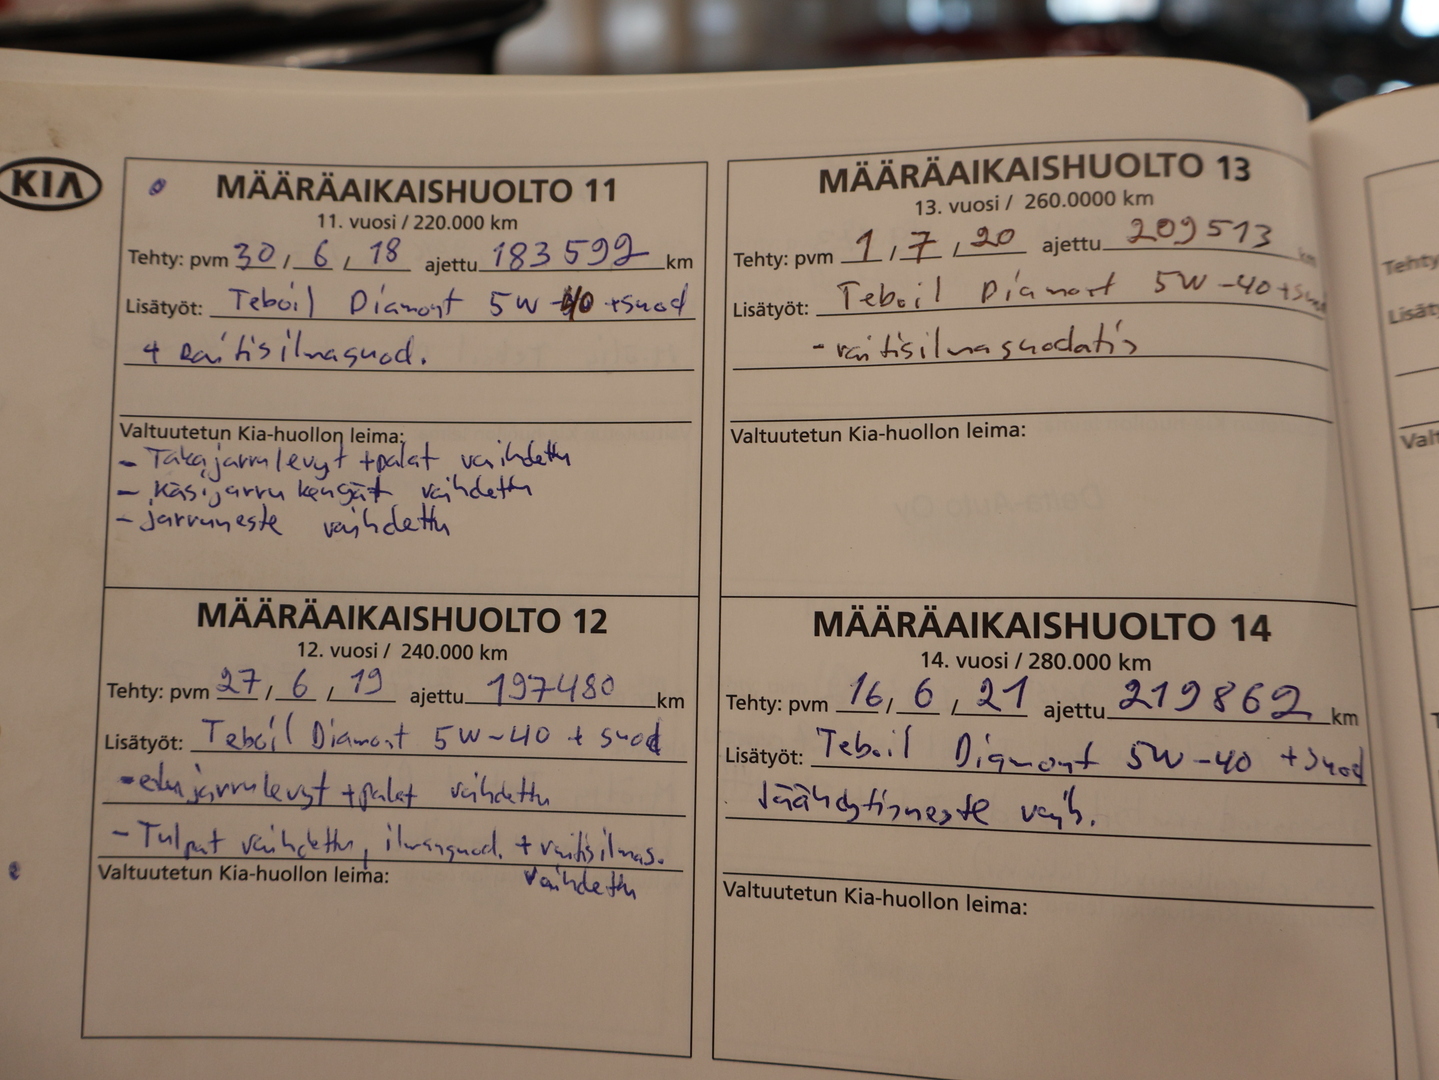 KIA
MÄÄRÄAIKAISHUOLTO 11
11. vuosi / 220.000 km
Tehty: pvm 30 / 6 / 18 ajettu 183592 km
Lisätyöt: Teboil Diamont 5W-40 +suod
+ raitisilmasuod.
Valtuutetun Kia-huollon leima:
- Takajarrulevyt +palat vaihdettu
- Käsijarru kengät vaihdettu
- jarruneste vaihdettu
MÄÄRÄAIKAISHUOLTO 12
12. vuosi / 240.000 km
Tehty: pvm 27 / 6 / 19 ajettu 197480 km
Lisätyöt: Teboil Diamont 5W-40 + suod
- etujarrulevyt +palat vaihdettu
- Tulpat vaihdettu, ilmansuod. + raitisilmas.
Valtuutetun Kia-huollon leima: vaihdettu
MÄÄRÄAIKAISHUOLTO 13
13. vuosi / 260.0000 km
Tehty: pvm 1 / 7 / 20 ajettu 209513 km
Lisätyöt: Teboil Diamont 5W-40+suod
- raitisilmasuodatin
Valtuutetun Kia-huollon leima:
MÄÄRÄAIKAISHUOLTO 14
14. vuosi / 280.000 km
Tehty: pvm 16 / 6 / 21 ajettu 219862 km
Lisätyöt: Teboil Diamont 5W-40 +suod
Jäähdytinneste vaih.
Valtuutetun Kia-huollon leima:
Tehty
Lisät
Valt